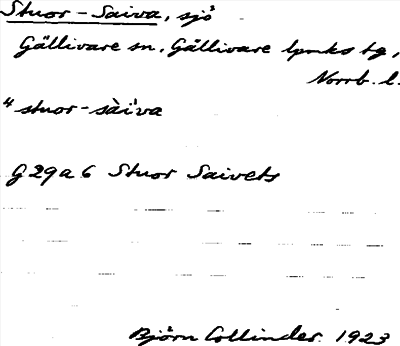 Stuor-Saiva, sjö
Gällivare sn, Gällivare lpmks tg,
Norrb. l.
"stuor-sài'va
G 29 a 6 Stuor Saivets
Björn Collinder. 1923